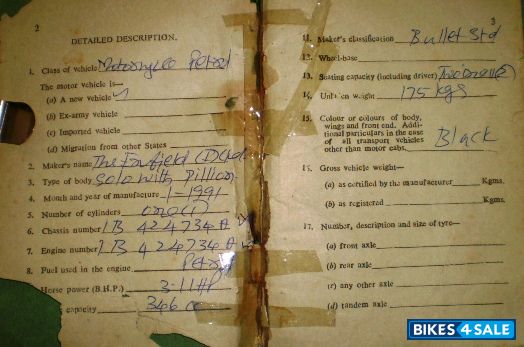 2
DETAILED DESCRIPTION.
1. Class of vehicle Motorcycle Petrol
The motor vehicle is—
(a) A new vehicle ✓
(b) Ex-army vehicle
(c) Imported vehicle
(d) Migration from other States
2. Maker's name The Enfield (I) Ltd
3. Type of body Solo with Pillion
4. Month and year of manufacture 1-1991
5. Number of cylinders one (1)
6. Chassis number 1B 424734 A
7. Engine number 1B 424734 A
8. Fuel used in the engine Petrol
Horse power (B.H.P.) 3.1 HP
capacity 346 cc
3
11. Maker's classification Bullet Std
12. Wheel-base
13. Seating capacity (including driver)
14. Unladen weight 175 kgs
15. Colour or colours of body, wings and front end. Addi-
tional particulars in the case
of all transport vehicles
other than motor cabs. Black
16. Gross vehicle weight—
(a) as certified by the manufacturer Kgms.
(b) as registered Kgms.
17. Number, description and size of tyre—
(a) front axle
(b) rear axle
(c) any other axle
(d) tandem axle
BIKES4SALE